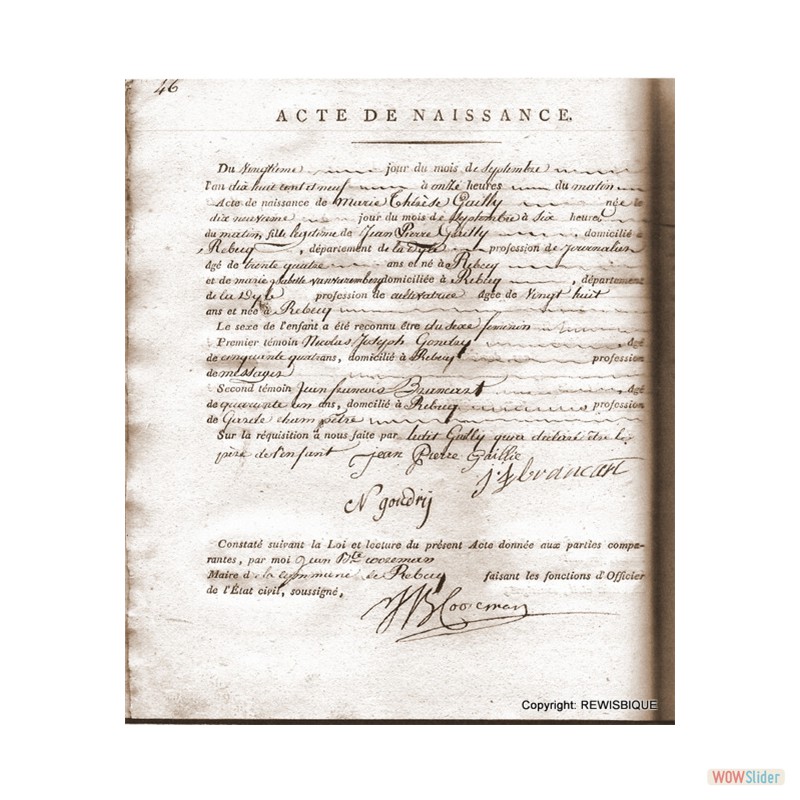 46
ACTE DE NAISSANCE.
Du vingtieme jour du mois de septembre
l'an dix huit cent et neuf à onze heures du matin
Acte de naissance de marie Thérèse Gailly née le
dix neuvieme jour du mois de septembre à six heures
du matin, fille legitime de Jean Pierre Gailly domicilié
à Rebecq, département de la Dyle profession de journalier
âgé de trente quatre ans et né à Rebecq
et de marie isabelle domiciliée à Rebecq, département
de la Dyle profession de cultivatrice âgée de vingt huit
ans et née à Rebecq
Le sexe de l'enfant a été reconnu être du sexe feminin
Premier témoin Nicolas Joseph âgé
de cinquante quatr ans, domicilié à Rebecq profession
de messager
Second témoin Jean francois Brancart âgé
de quarante un ans, domicilié à Rebecq profession
de Garde champêtre
Sur la réquisition à nous faite par ledit Gailly qui a déclaré être le
père de l'enfant jean Pierre Gaillie
j f brancart
N gondrij
Constaté suivant la Loi et lecture du présent Acte donnée aux parties compa-
rantes, par moi Jean Bte cooreman
Maire de la Commune de Rebecq faisant les fonctions d'Officier
de l'État civil, soussigné,
JB Cooreman
Copyright: REWISBIQUE
WOWSlider